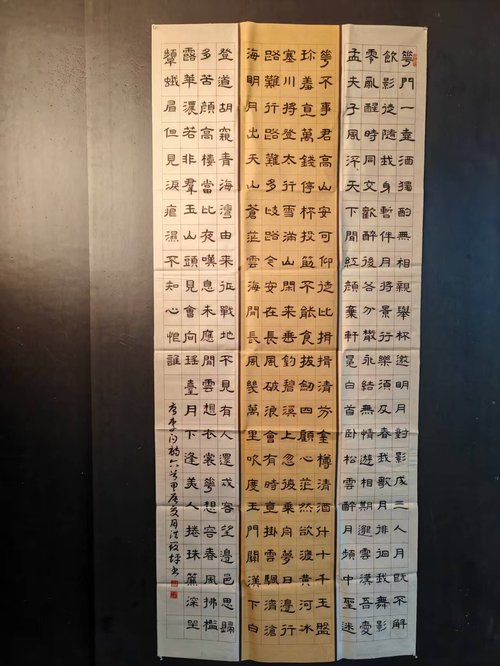 花間一壺酒獨酌無相親舉杯邀明月對影成三人月既不解
飲影徒隨我身暫伴月將影行樂須及春我歌月徘徊我舞影
零亂醒時同交歡醉後各分散永結無情遊相期邈雲漢吾愛
孟夫子風流天下聞紅顏棄軒冕白首臥松雲醉月頻中聖迷
花不事君高山安可仰徒比揖揖清芬金樽清酒斗十千玉盤
珍羞直萬錢停杯投筯不能食拔劍四顧心茫然欲渡黃河冰
塞川將登太行雪滿山閒來垂釣碧溪上忽復乘舟夢日邊行
路難行路難多歧路今安在長風破浪會有時直掛雲帆濟滄
海明月出天山蒼茫雲海間長風幾萬里吹度玉門關漢下白
登道胡窺青海灣由來征戰地不見有人還戍客望邊邑思歸
多苦顏高樓當此夜嘆息未應閒雲想衣裳花想容春風拂檻
露華濃若非群玉山頭見會向瑤臺月下逢美人捲珠簾深坐
顰蛾眉但見淚痕濕不知心恨誰
唐李白詩六首甲辰夏月洪書